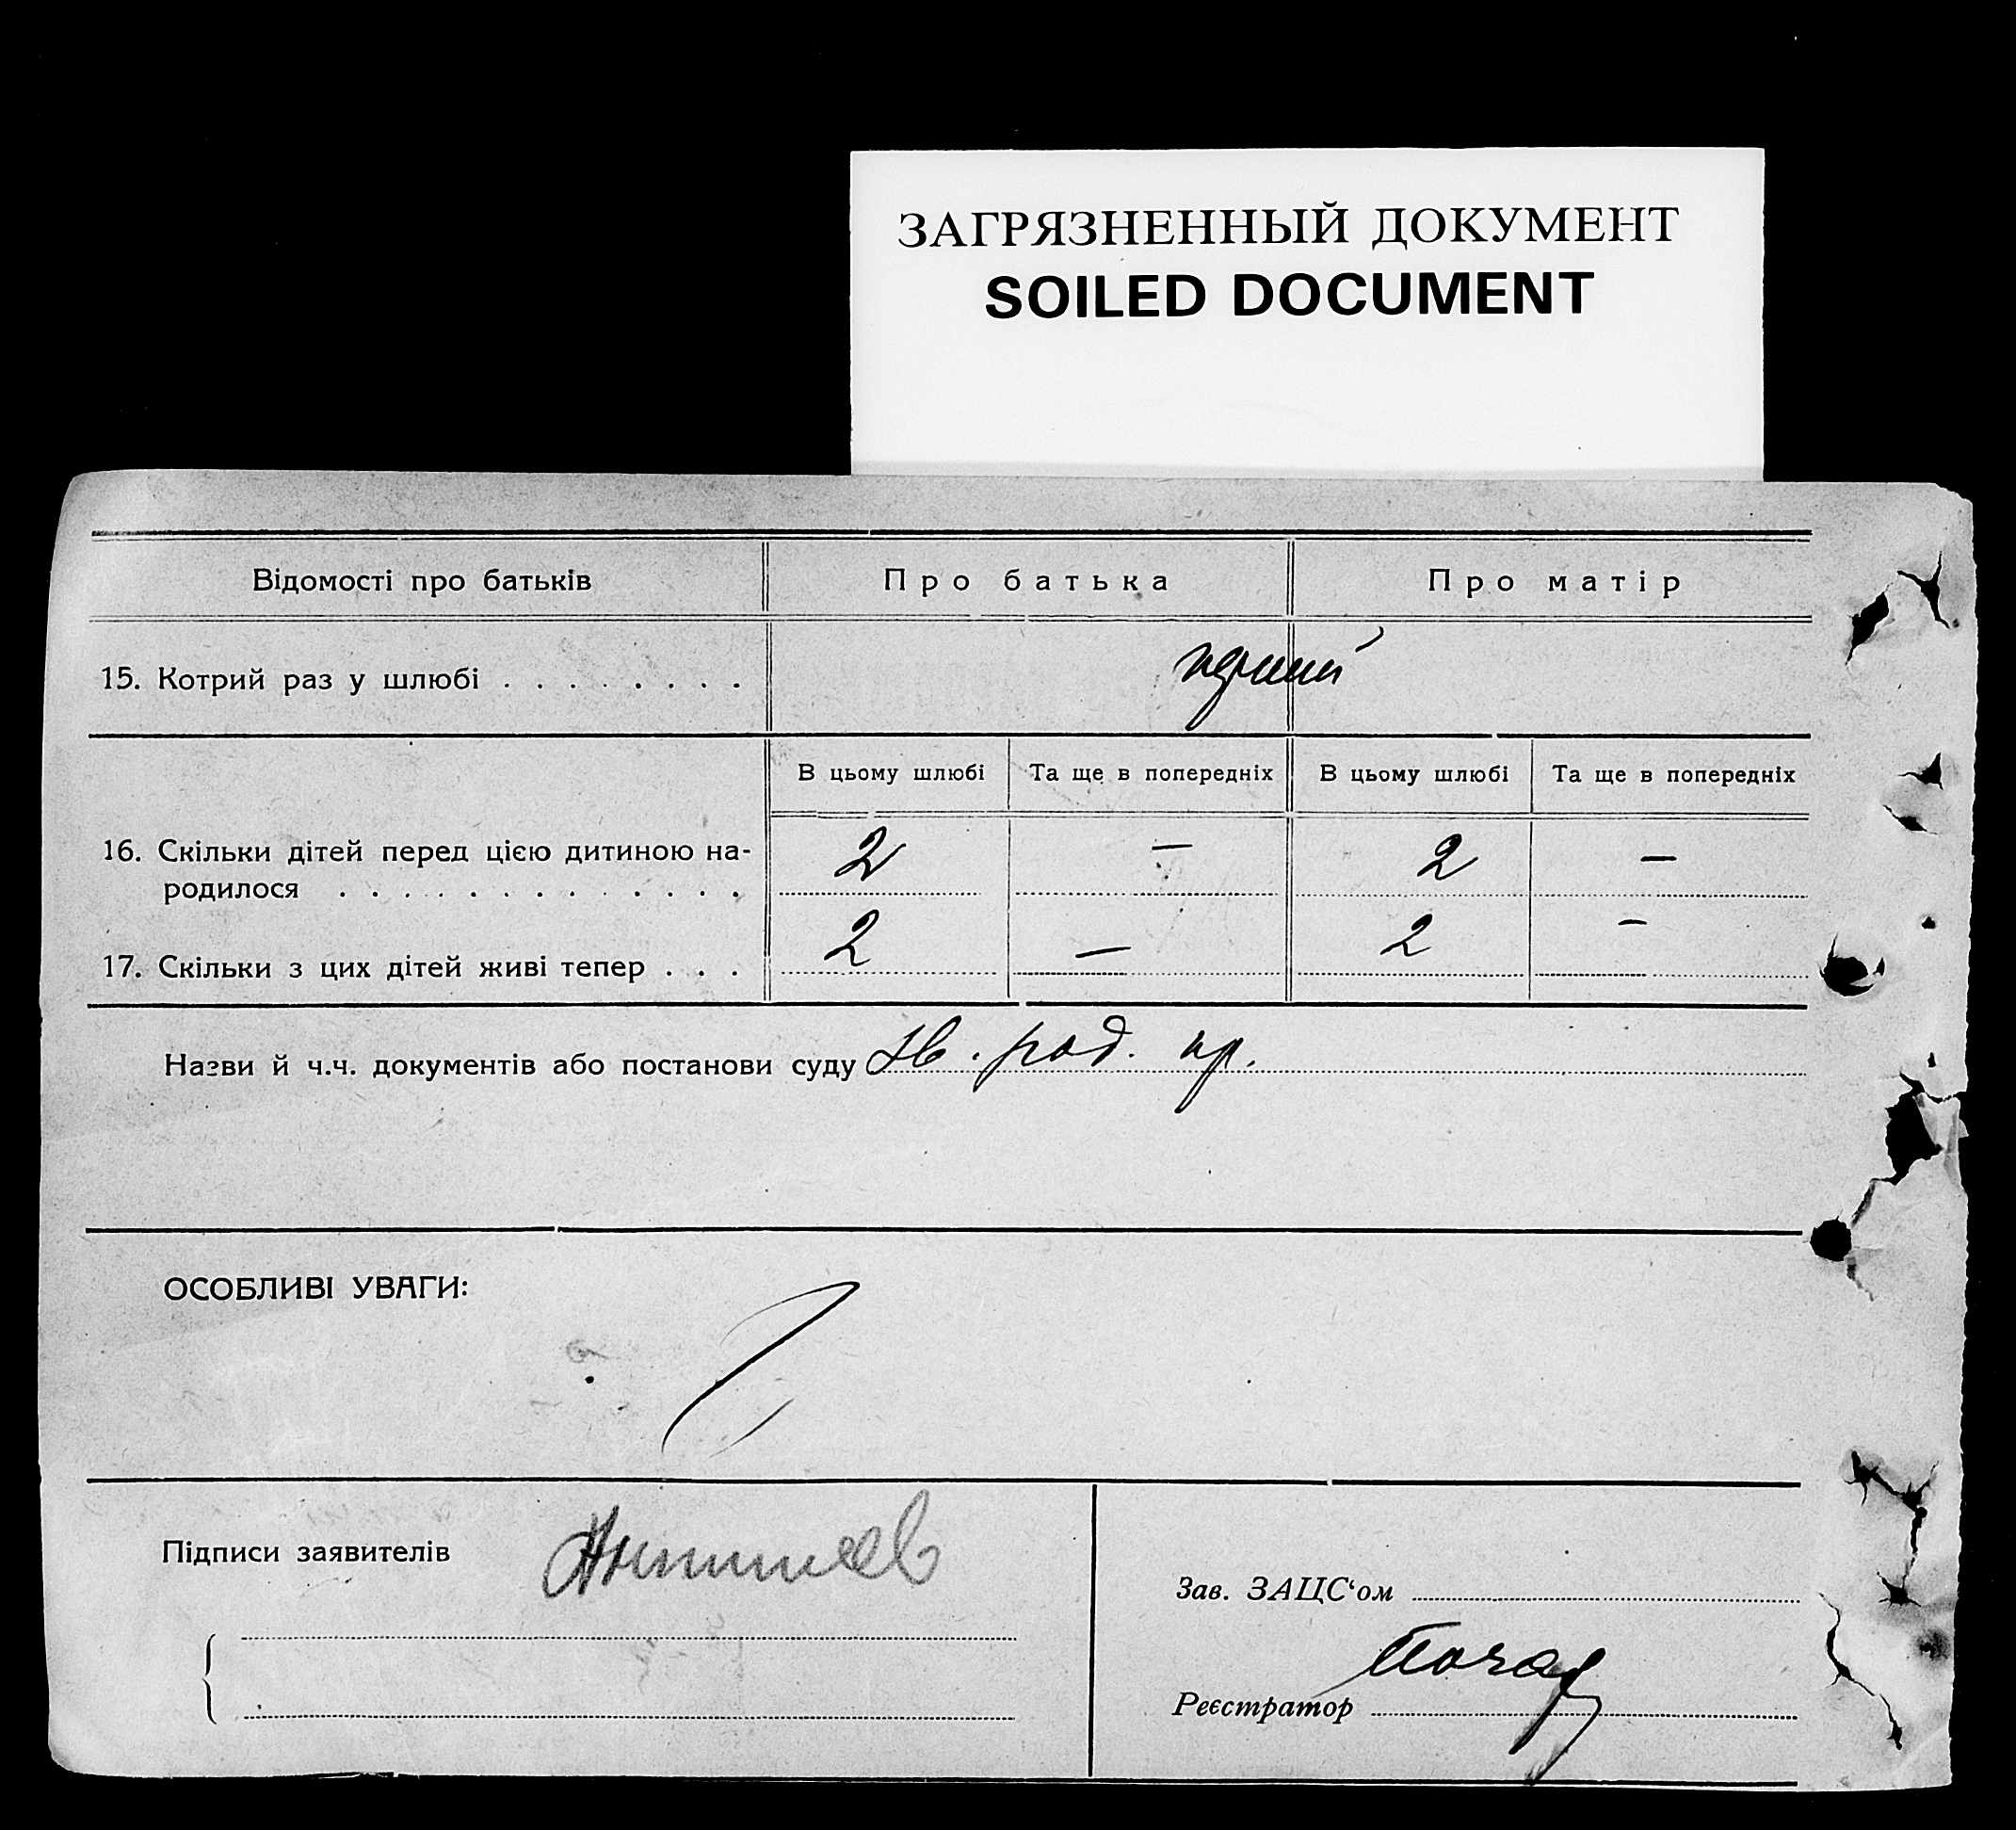 ЗАГРЯЗНЕННЫЙ ДОКУМЕНТ
SOILED DOCUMENT
Відомості про батьків Про батька Про матір
15. Котрий раз у шлюбі . . . . . . . .
В цьому шлюбі Та ще в попередніх В цьому шлюбі Та ще в попередніх
16. Скільки дітей перед цією дитиною на-
родилося . . . . . . . . . . . . . 2 — 2 —
17. Скільки з цих дітей живі тепер . . . 2 — 2 —
Назви й ч.ч. документів або постанови суду род. пр.
ОСОБЛИВІ УВАГИ:
Підписи заявителів
Зав. ЗАЦС‘ом
Реєстратор